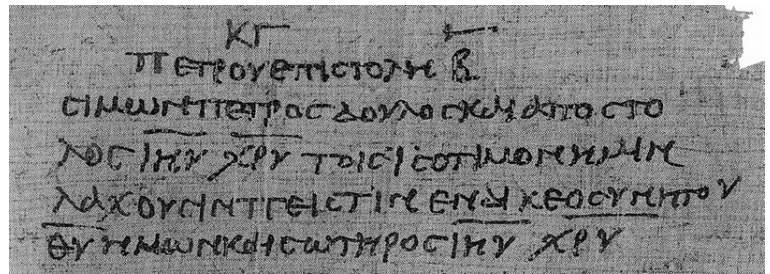 ΚΓ
ΠΕΤΡΟΥ ΕΠΙϹΤΟΛΗ Β
ϹΙΜΩΝ ΠΕΤΡΟϹ ΔΟΥΛΟϹ ΚΑΙ ΑΠΟϹΤΟ
ΛΟϹ ΙΗΥ ΧΡΥ ΤΟΙϹ ΙϹΟΤΙΜΟΝ ΗΜΙΝ
ΛΑΧΟΥϹΙΝ ΠΕΙϹΤΙΝ ΕΝ ΔΙΚΕΟϹΥΝΗ ΤΟΥ
ΘΥ ΗΜΩΝ ΚΑΙ ϹΩΤΗΡΟϹ ΙΗΥ ΧΡΥ